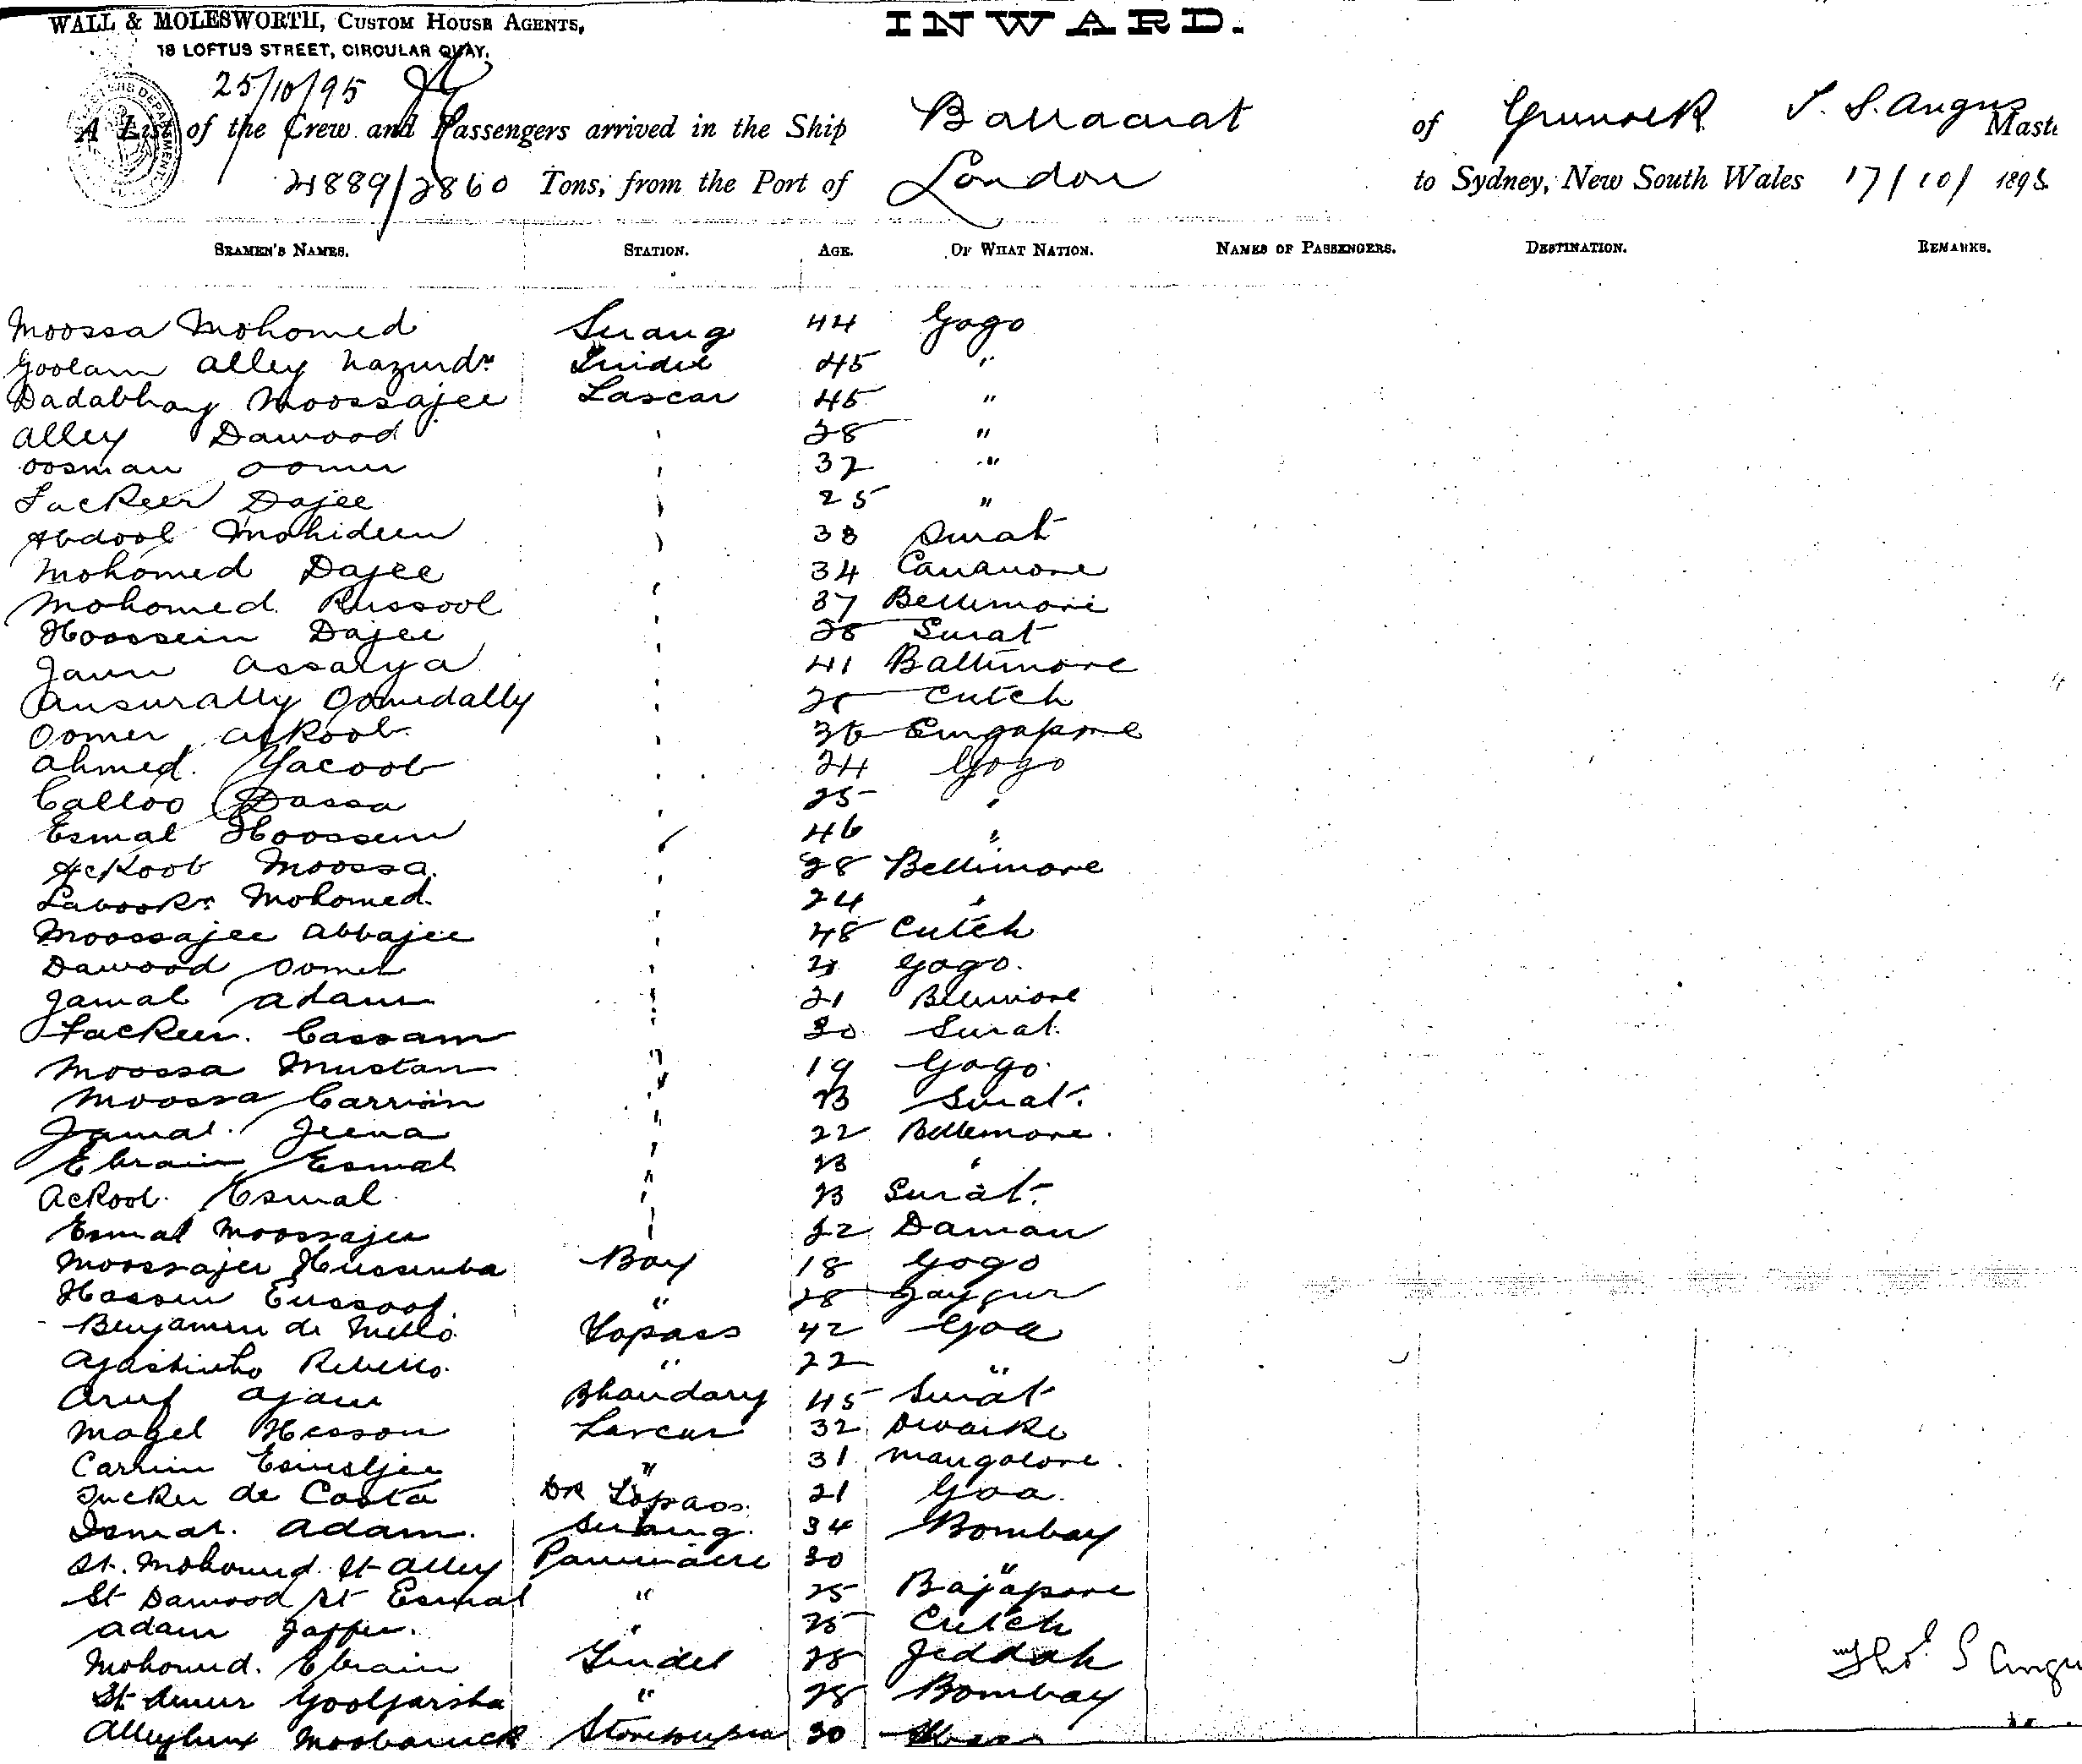 WALL & MOLESWORTH, CUSTOM HOUSE AGENTS,
18 LOFTUS STREET, CIRCULAR QUAY.
INWARD.
25/10/95
A List of the Crew and Passengers arrived in the Ship Ballaarat of Greenock T. S. Angus Maste
4889/2860 Tons, from the Port of London to Sydney, New South Wales 17/10/1895
SEAMEN'S NAMES. STATION. AGE. OF WHAT NATION. NAMES OF PASSENGERS. DESTINATION. REMARKS.
Moossa Mohomed Serang 44 Gogo
Goolam Alley Tindel 45 "
Dadabhoy Moossajee Lascar 45 "
Alley Dawood 28 "
Oosman Oomer 32 "
Fackeer Dajee 25 "
Abdool Mohideen 38 Surat
Mohomed Dajee 34 Cananore
Mohomed Russool 37 Bellimore
Hoossein Dajee 28 Surat
Assalya 41 Baltimore
Ansurally Oomedally Cutch
Oomer Ackoob 36 Singapore
Ahmed Yacoob 24 Gogo
Calloo Dassa 25 "
Esmal Hoossein 46 "
Ackoob Moossa 28 Bellimore
Mohomed 24 "
Moossajee Abbajee 48 Cutch
Dawood Oomer Gogo.
Jamal Adam 21 Bellimore
Fackeer Cassam 30 Surat.
Moossa Mustan 19 Gogo.
Moossa Carrim 23 Surat.
Jamal Jeena 22 Bellemore.
Ebraim Esmal 23 "
Ackoob Esmal 23 Surat.
Esmal Moossajee 22 Daman
Moossajee Boy 18 Gogo
Hassen Eussoof " 28 Jaygur
Benjamin de Mello Topass 42 Goa
Rebello " 22 "
Bhandary 45 Surat
Hasson Lascar 32
Carrim " 31 Mangalore.
de Costa Topass 21 Goa.
Ismal. Adam. Serang. 34 Bombay
St. Mohomed St Alley Panniwallah 30 "
St Dawood St Esmal " 25 Bajapore
Adam Jaffer. " 25 Cutch
Mohomed. Ebraim Tindel 28 Jeddah
St " 28 Bombay
Moobaruck 30
Thos. S Angu